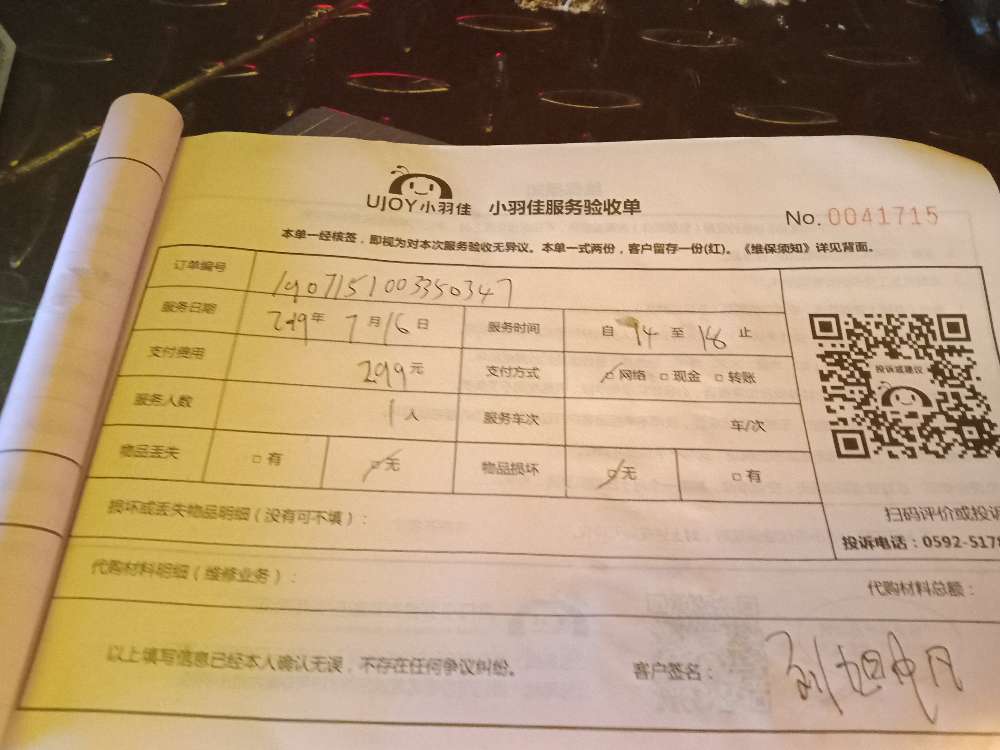 UJOY小羽佳 小羽佳服务验收单
No. 0041715
本单一经核签，即视为对本次服务验收无异议。本单一式两份，客户留存一份(红)。《维保须知》详见背面。
订单编号 1907151003350347
服务日期 2019年 7月16日 服务时间 自 14 至 18 止
支付费用 299元 支付方式 ☑网络 □现金 □转账
服务人数 1人 服务车次 车/次
物品丢失 □有 ☑无 物品损坏 ☑无 □有
投诉或建议
损坏或丢失物品明细（没有可不填）：
扫码评价或投诉
投诉电话：0592-5178
代购材料明细（维修业务）：
代购材料总额：
以上填写信息已经本人确认无误，不存在任何争议纠纷。
客户签名：